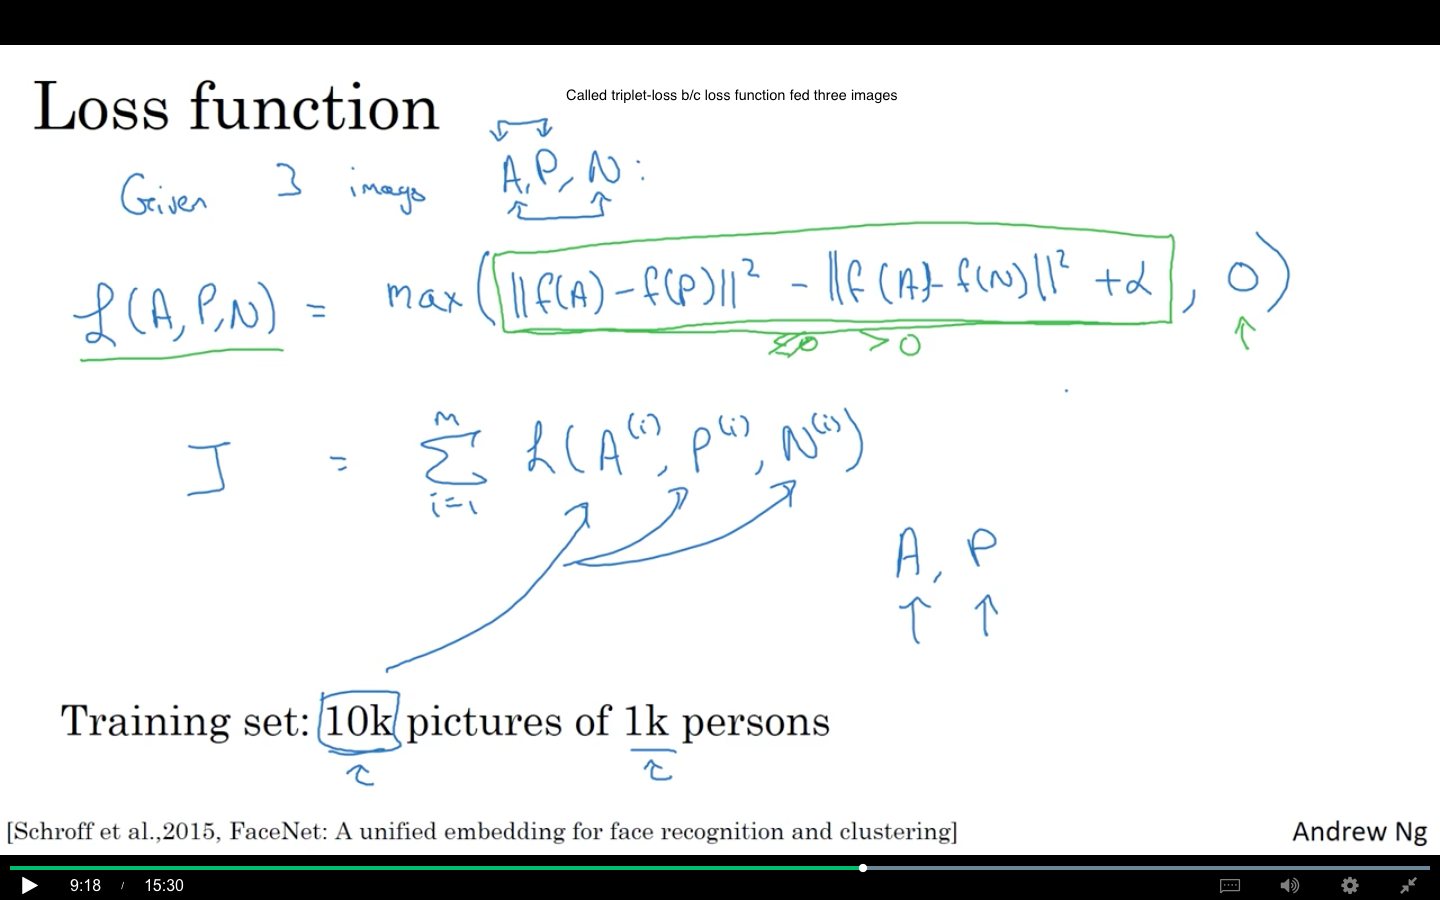 Loss function
Called triplet-loss b/c loss function fed three images
Given 3 images A, P, N:
L(A, P, N) = max(||f(A) - f(P)||² - ||f(A) - f(N)||² + α, 0)
> 0
J = Σ L(A⁽ⁱ⁾, P⁽ⁱ⁾, N⁽ⁱ⁾)
m
i=1
A, P
Training set: 10k pictures of 1k persons
[Schroff et al.,2015, FaceNet: A unified embedding for face recognition and clustering]
Andrew Ng
9:18 / 15:30